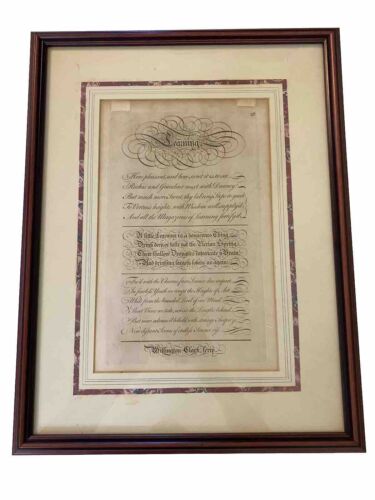 Learning.
How pleasant, and how sweet it is to see
Riches and Grandeur meet with Decency
But much more Sweet thy beloved hope to gain
To Virtues heights, with Wisdom well supply'd,
And all the Magazines of Learning fortify'd.
A little Learning is a dangerous Thing
Drink deep or taste not the Pierian Spring
Their shallow Draughts intoxicate the Brain
And drinking largely sobers us again.
Fir'd with the Charms fair Science does impart
In fearless Youth we tempt the Heights of Art
While from the bounded Level of our Mind
Short Views we take, nor see the Lengths behind
But more advanc'd behold with strange Surprize
New distant Scenes of endless Science rise
Willington Clark, scrip.